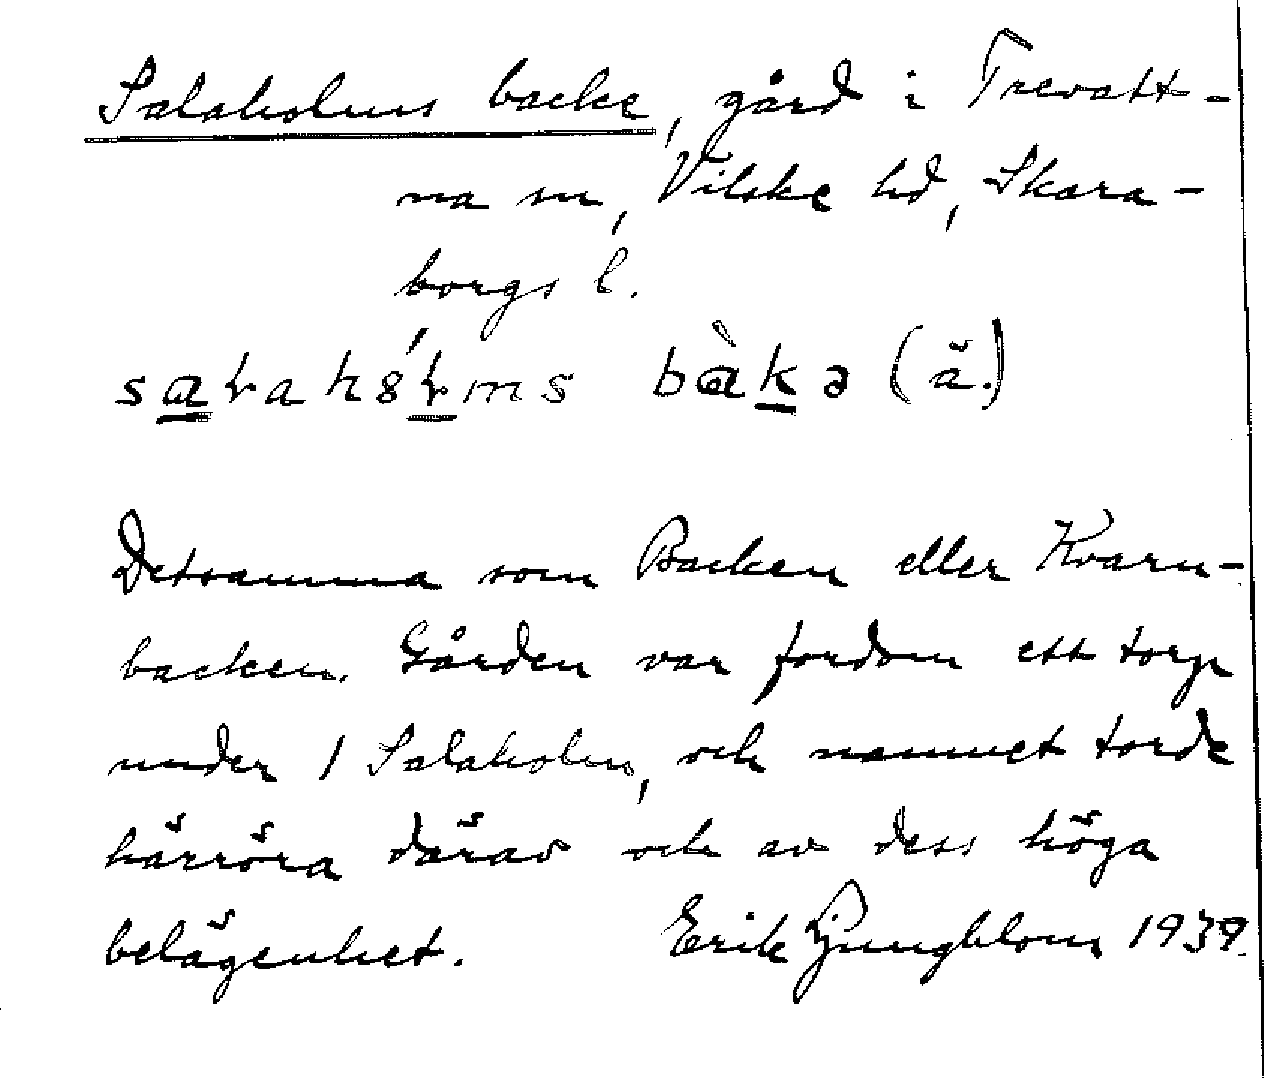 Salaholms backe, gård i Trevatt-
na sn, Vilske hd, Skara-
borgs l.
bàkə (ä.)
Detsamma som Backen eller Kvarn-
backen. Gården var fordom ett torp
under / Salaholm, och namnet torde
härröra därav och av dess höga
belägenhet. Erik Ljungblom 1939.